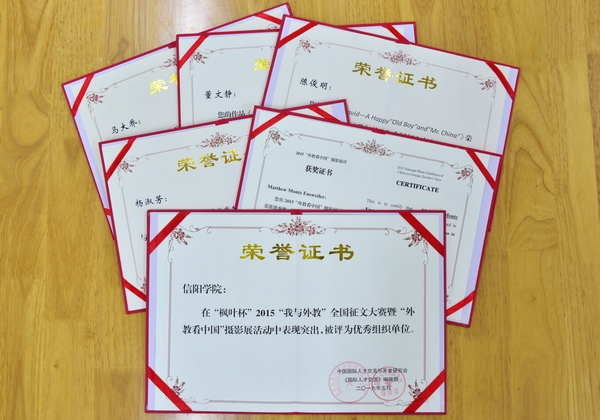 荣誉证
马文乔:
荣誉证书
董文静:
您的作品《
荣誉证书
陈俊明:
vid—A Happy"Old Boy"and"Mr. China"》荣
荣誉证
杨淑芳:
2015 "外教看中国" 摄影展评
获奖证书
Matthew Monte Ennweiler:
CERTIFICATE
This is to certify that
荣誉证书
信阳学院:
在 "枫叶杯" 2015 "我与外教" 全国征文大赛暨 "外
教看中国"摄影展活动中表现突出,被评为优秀组织单位。
中国国际人才交流与开发研究会
《国际人才交流》编辑部
二〇一六年五月